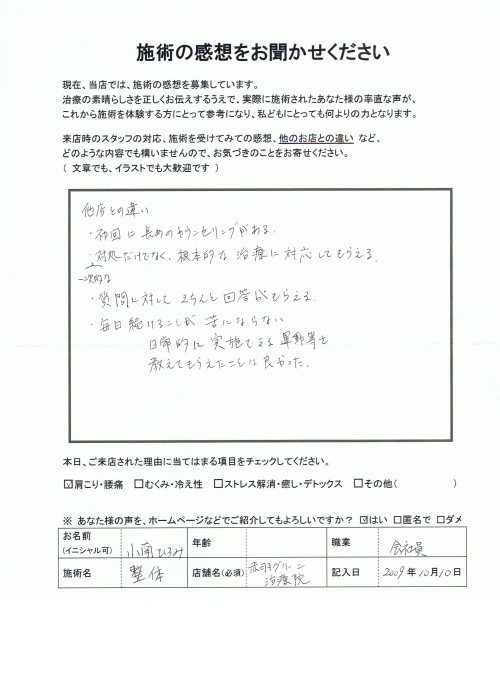 施術の感想をお聞かせください
現在、当店では、施術の感想を募集しています。
治療の素晴らしさを正しくお伝えするうえで、実際に施術されたあなた様の率直な声が、
これから施術を体験する方にとって参考になり、私どもにとっても何よりの力となります。
来店時のスタッフの対応、施術を受けてみての感想、他のお店との違い など、
どのような内容でも構いませんので、お気づきのことをお寄せください。
( 文章でも、イラストでも大歓迎です )
他店との違い
・初回に長めのカウンセリングがある。
・対処だけでなく、根本的な治療に対応してもらえる。
一次的な
・質問に対してきちんと回答がもらえる。
・毎日続けることが苦にならない
日常的に実施できる運動等を
教えてもらえたことは良かった。
本日、ご来店された理由に当てはまる項目をチェックしてください。
☑肩こり・腰痛 □むくみ・冷え性 □ストレス解消・癒し・デトックス □その他( )
※ あなた様の声を、ホームページなどでご紹介してもよろしいですか？ ☑はい □匿名で □ダメ
お名前 (イニシャル可) 小南ひろみ 年齢 職業 会社員
施術名 整体 店舗名(必須) グリーン治療院 記入日 2009年10月10日